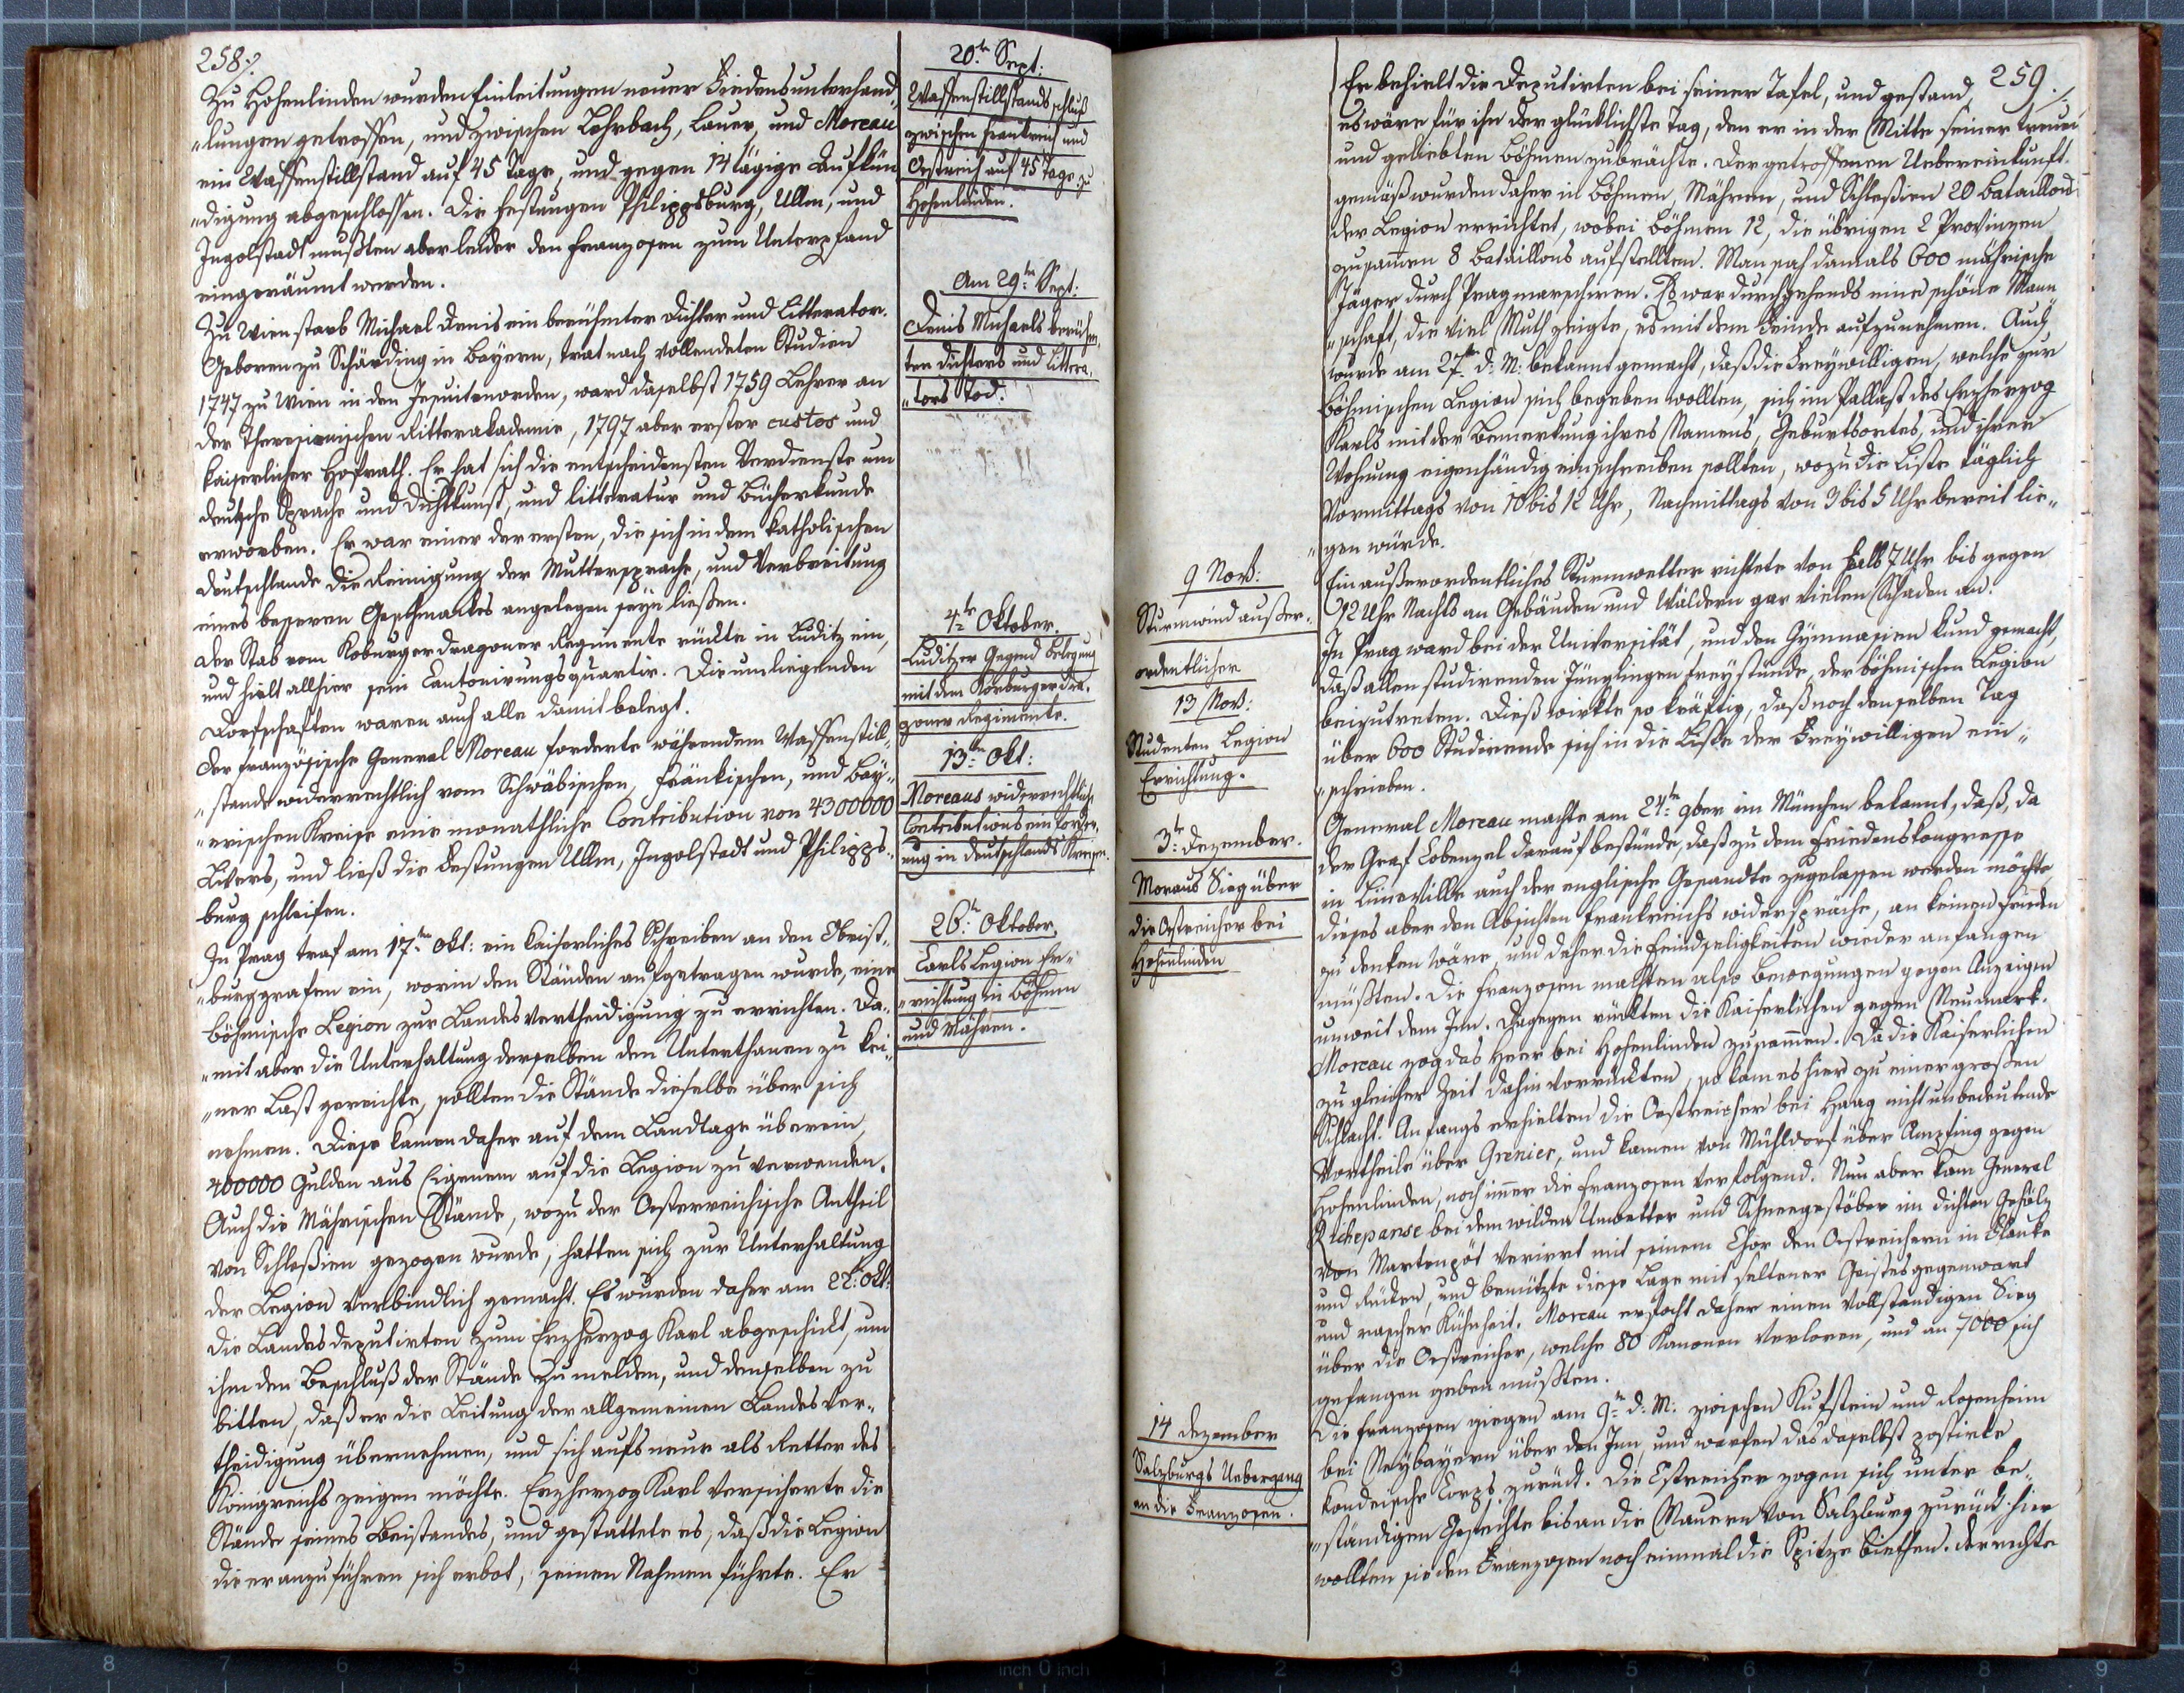 258.
Zu Hohenlinden wurden Einleitungen neuer Friedensunterhand„
„lungen getroffen, und zwischen Lehrbach, Lauer, und Moreau
ein Waffenstillstand auf 45 Tage, und gegen 14 tägige Aufkün
„digung abgeschlossen. Die Festungen Philippsburg, Ullm, und
Ingolstadt mußten aber leider den Franzosen zum Unterpfand
eingeräumt werden.
Zu Wien starb Michael Denis ein berühmter Dichter und Litterator.
Geboren zu Schärding in Bayern, trat nach vollendeten Studien
1747 zu Wien in den Jesuitenorden, ward daselbst 1759 Lehrer an
der Theresianischen Ritterakademie, 1797 aber erster custos und
kaiserlicher Hofrath. Er hat sich die entscheidensten Verdienste um
deutsche Sprache und Dichtkunst, und Litteratur und Bücherkunde
erworben. Er war einer der ersten, die sich in dem katholischen
Deutschlande die Reinigung der Muttersprache, und Verbreitung
eines beßeren Geschmackes angelegen seyn ließen.
Der Stab vom Koburger Dragoner Regimente rückte in Luditz ein,
und hielt allhier sein Cantonirungsquartir. Die umliegenden
Dorfschaften waren auch alle damit belegt.
Der französische General Moreau forderte währendem Waffenstill„
„stande widerrechtlich vom Schwäbischen, Fränkischen, und Bay„
„erischen Kreise eine monathliche Contribution von 4300000
Livers, und ließ die Festungen Ullm, Ingolstadt und Philipps„
burg schleifen.
In Prag traf am 17ten Okt: ein kaiserliches Schreiben an den Obrist„
„burggrafen ein, worin den Ständen aufgetragen wurde, eine
böhmische Legion zur Landesvertheidigung zu errichten. Da„
„mit aber die Unterhaltung derselben den Unterthanen zu kei„
„ner Last gereichte, sollten die Stände dieselbe über sich
nehmen. Diese kamen daher auf dem Landtage überein,
400000 Gulden aus Eigenem auf die Legion zu verwenden.
Auch die Mährischen Stände, wozu der Oesterreichische Antheil
von Schleßien gezogen wurde, hatten sich zur Unterhaltung
der Legion verbindlich gemacht. Es wurden daher am 22. Okt:
die Landesdeputirten zum Erzherzog Karl abgeschickt, um
ihm den Beschluß der Stände zu melden, und denselben zu
bitten, daß er die Leitung der allgemeinen Landesver„
theidigung übernehmen, und sich aufs neue als Retter des
Königreichs zeigen möchte. Erzherzog Karl versicherte die
Stände seines Beistandes, und gestattete es, daß die Legion
die er anzuführen sich erbot, seinen Nahmen führte. Er
20te Sept:
Waffenstillstands schluß
zwischen Frankreich und
Oestreich auf 45 Tage zu
Hohenlinden.
Am 29ten Sept:
Denis Michaels berühm„
ten Dichters und Littera„
„tors Tod.
4te Oktober.
Luditzer Gegend Belegung
mit dem Koburger Dra„
goner Regimente.
13te Okt:
Moreaus widerrechtliche
Contributions ein forder„
ung in Deutschlands Kreisen.
26te Oktober.
Carls Legion Er„
„richtung in Böhmen
und Mähren.
259.
Er behielt die Deputirten bei seiner Tafel, und gestand,
es wäre für ihn der glücklichste Tag, den er in der Mitte seiner treuen
und geliebten Böhmen zubrächte. Der getroffenen Uebereinkunft
gemäß wurden daher in Böhmen, Mähren, und Schleßien 20 Bataillons
der Legion errichtet, wobei Böhmen 12, die übrigen 2 Provinzen
zusammen 8 Bataillons aufstellten. Man sah damals 600 mährische
Jäger durch Prag marschiren. Es war durchgehends eine schöne Mann
„schaft, die viel Muth zeigte, es mit dem Feinde aufzunehmen. Auch
wurde am 27ten d: M: bekannt gemacht, daß die Freywilligen, welche zur
Böhmischen Legion sich begeben wollten, sich im Pallast des Erzherzog
Karls mit der Bemerkung ihres Namens, Geburtsortes, und ihrer
Wohnung eigenhändig einschreiben sollten, wozu die Liste täglich
Vormittags von 10 bis 12 Uhr, Nachmittags von 3 bis 5 Uhr bereit lie„
„gen würde.
Ein außerordentliches Sturmwetter richtete von halb 7 Uhr bis gegen
12 Uhr Nachts an Gebäuden und Wäldern gar vielen Schaden an.
In Prag ward bei der Universität, und den Gymnasien kund gemacht,
daß allen studirenden Jünglingen frey stünde, der böhmischen Legion
beizutreten. Dieß wirkte so kräftig, daß noch denselben Tag
über 600 Studirende sich in die Liste der Freywilligen ein„
„schrieben.
General Moreau machte am 24ten 9ber in München bekannt, daß, da
der Graf Cobenzel darauf bestünde, daß zu dem Friedenskongresse
in Lüneville auch der englische Gesandte zugelassen werden möchte
dieses aber den Absichten Frankreichs widerspräche, an keinen Frieden
zu denken wäre, und daher die Feindseligkeiten wieder anfangen
müßten. Die Franzosen machten also Bewegungen gegen Anzeigen
unweit dem Inn. Dagegen rückten die Kaiserlichen gegen Neumark.
Moreau zog das Heer bei Hohenlinden zusammen. Da die Kaiserlichen
zu gleicher Zeit dahin vorrückten, so kam es hier zu einer großen
Schlacht. Anfangs erhielten die Oestreicher bei Haag nicht unbedeutende
Vortheile über Grenier, und kamen von Mühldorf über Ampfing gegen
Hohenlinden, noch immer die Franzosen verfolgend. Nun aber kam General
Richepanse bei dem wilden Unwetter und Schneegestöber im dichten Gehölz
von Martenpöt verirrt mit seinem Chor den Oestreichern in Flanke
und Rücken, und benützte diese Lage mit seltener Geistesgegenwart
und rascher Kühnheit. Moreau erfocht daher einen vollständigen Sieg
über die Oestreicher, welche 80 Kanonen verloren, und an 7000 sich
gefangen geben mußten.
Die Franzosen giengen am 9ten d: M: zwischen Kufstein und Rosenheim
bei Neybayern über den Inn, und warfen das daselbst postirte
kondeische Corps zurück. Die Estreicher zogen sich unter be„
„ständigen Gefechte bis an die Mauern von Salzburg zurück. Hier
wollten sie den Franzosen noch einmal die Spitze biethen. Der rechte
9 Nov:
Sturmwind außer„
ordentlicher
13 Nov:
Studenten Legion
Errichtung.
3te Dezember.
Moraus Sieg über
die Oestreicher bei
Hohenlinden
14 Dezember
Salzburgs Uebergang
an die Franzosen.